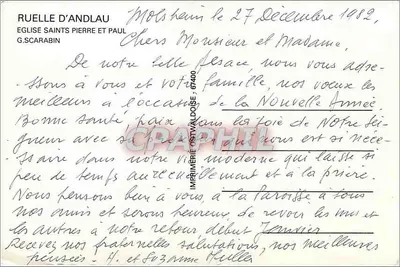 RUELLE D'ANDLAU
EGLISE SAINTS PIERRE ET PAUL
G.SCARABIN
Molsheim le 27 Décembre 1982.
Chers Monsieur et Madame,
De notre belle Alsace, nous vous adres-
sons à vous et votre famille, nos voeux les
meilleurs à l'occasion de la Nouvelle Année
Bonne santé, paix dans la joie de Notre Sei-
gneur avec nous est si néces-
saire dans notre vie moderne qui laisse si
peu de temps au recueillement et à la prière.
Nous pensons bien à vous, à la Paroisse à tous
nos amis et serons heureux de revoir les uns et
les autres à notre retour, début Janvier
Recevez nos fraternelles salutations, nos meilleures
pensées - H. et Suzanne
IMPRIMERIE OSTWALDOISE 67400
CPARAMA.COM